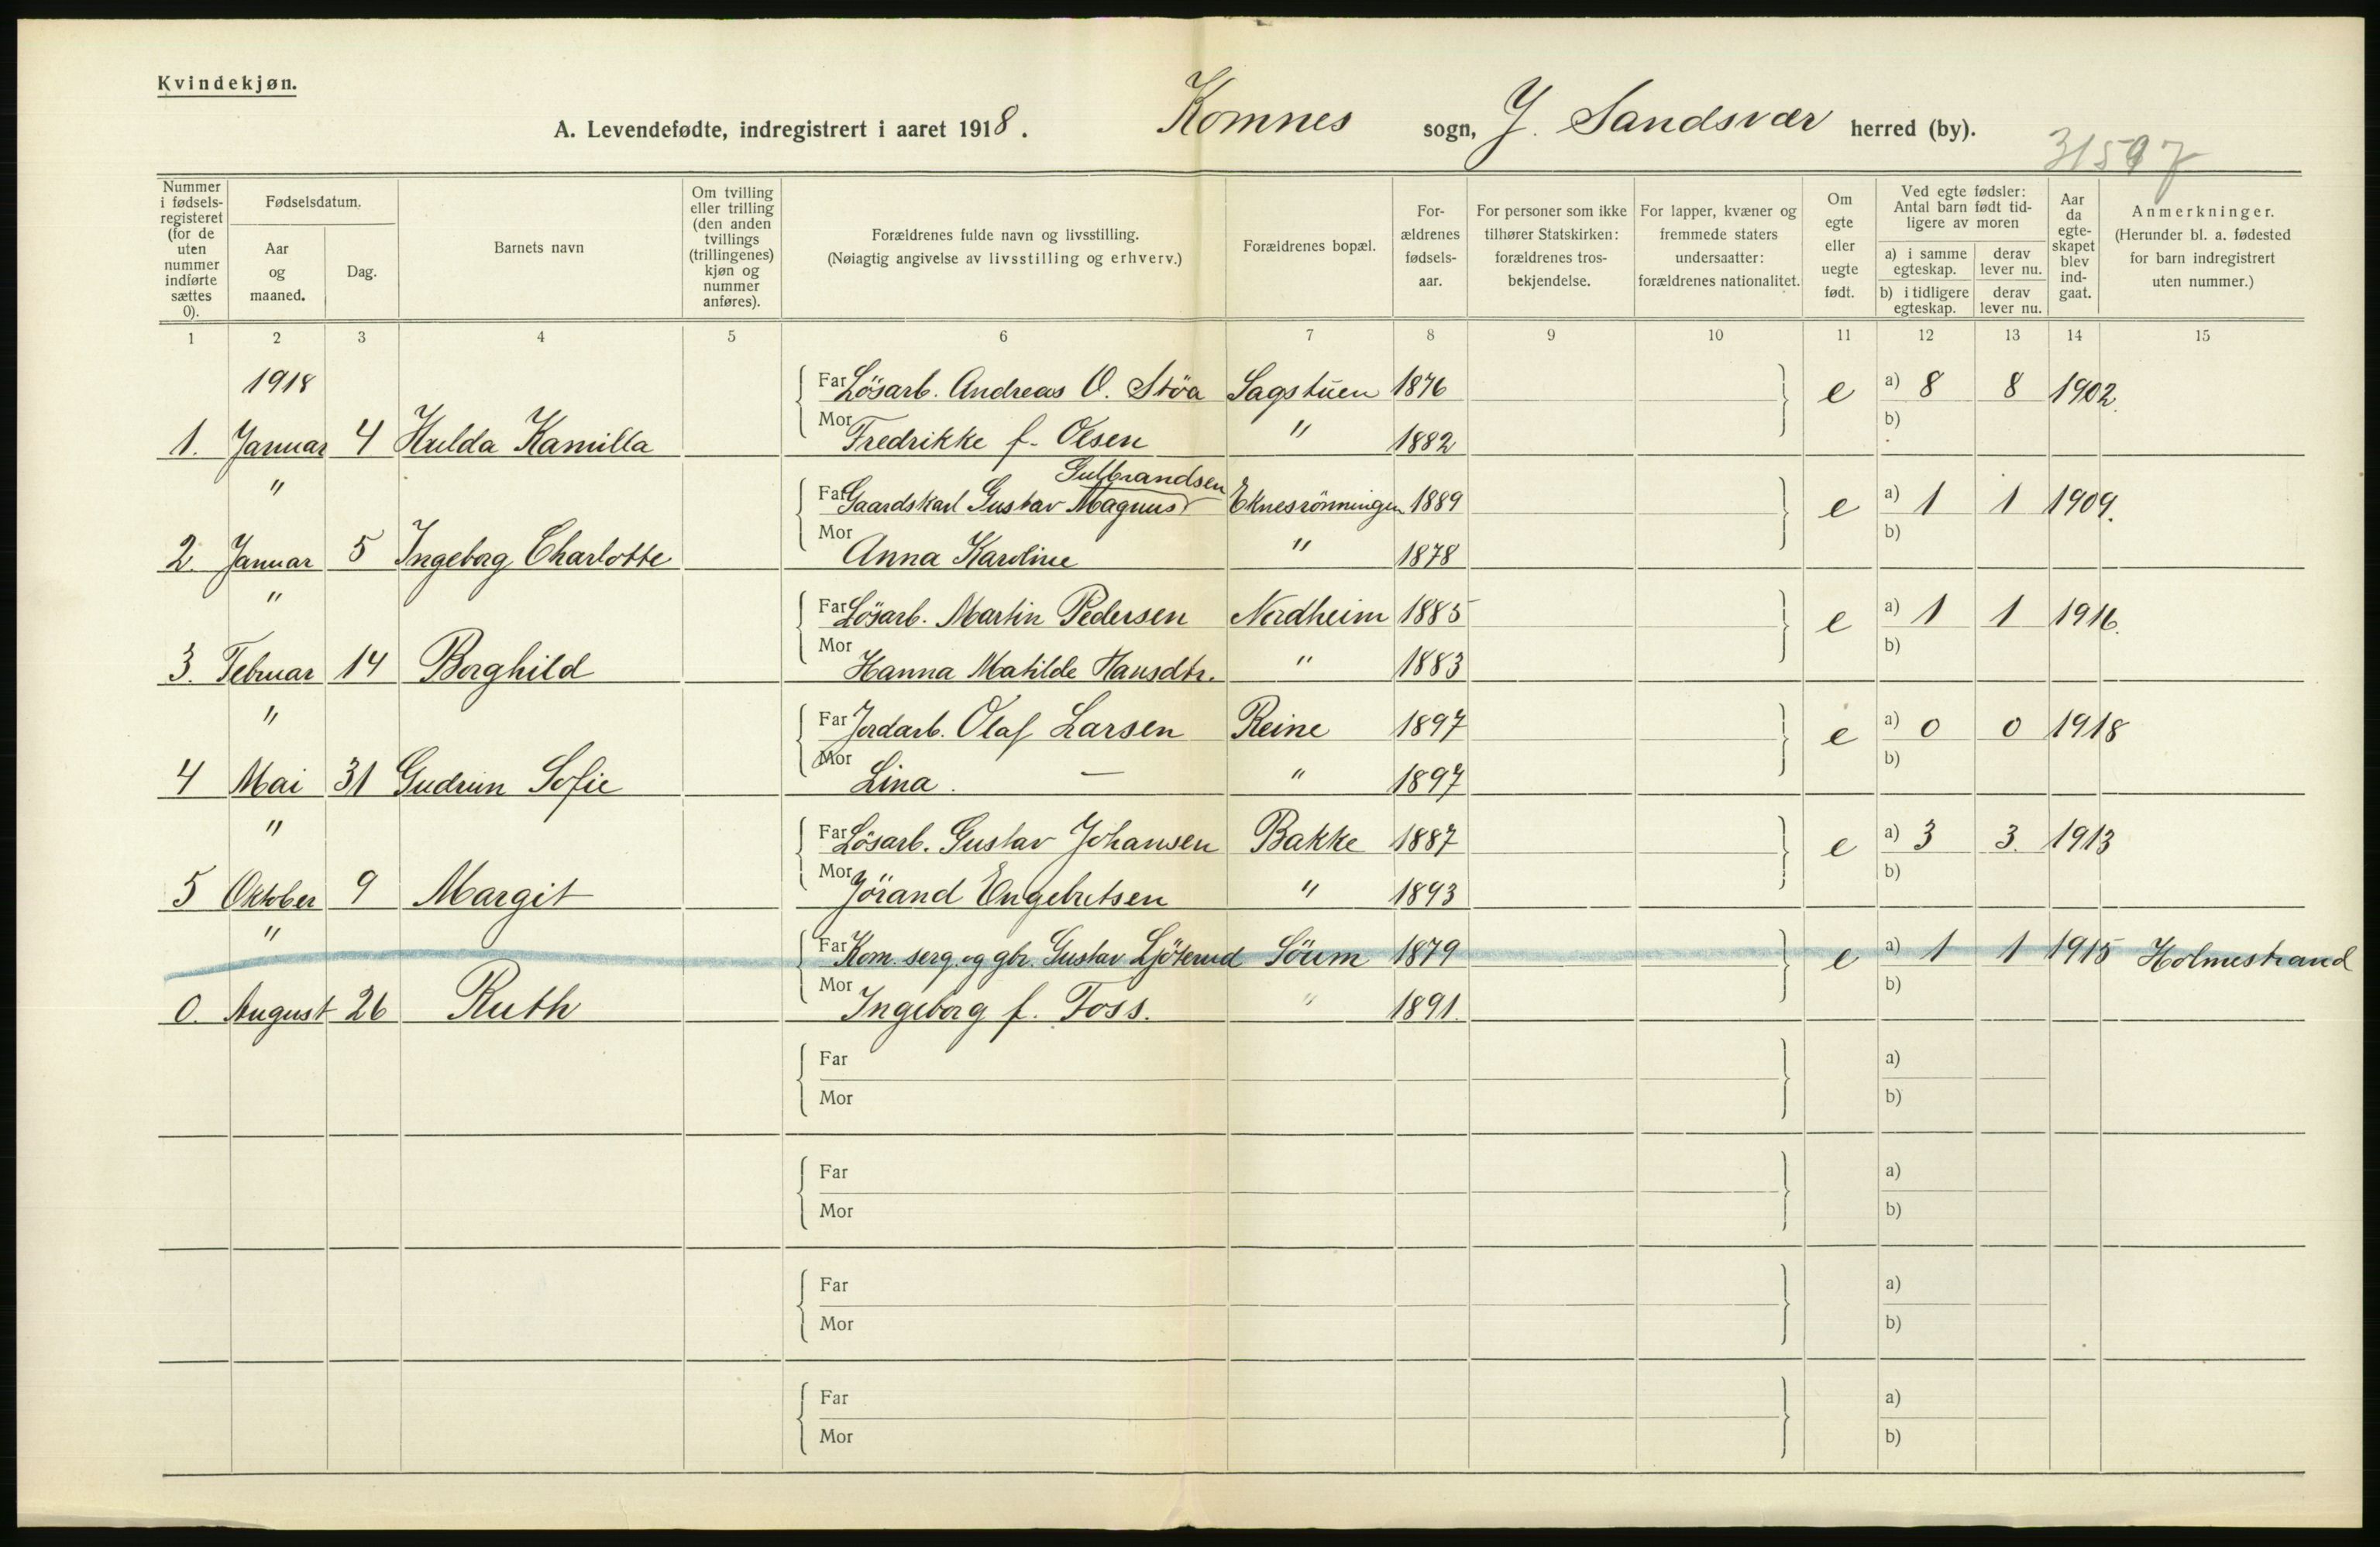 Kvindekjøn.
A. Levendefødte, indregistrert i aaret 1918. Komnes sogn, Y. Sandsvær herred (by).
Nummer i fødsels-registeret (for de uten nummer indførte sættes 0).
Fødselsdatum.
Aar og maaned.
Dag.
Barnets navn
Om tvilling eller trilling (den anden tvillings (trillingenes) kjøn og nummer anføres).
Forældrenes fulde navn og livsstilling.
(Nøiagtig angivelse av livsstilling og erhverv.)
Forældrenes bopæl.
For-ældrenes fødsels-aar.
For personer som ikke tilhører Statskirken: forældrenes tros-bekjendelse.
For lapper, kvæner og fremmede staters undersaatter: forældrenes nationalitet.
Om egte eller uegte født.
Ved egte fødsler: Antal barn født tid-ligere av moren
a) i samme egteskap. derav lever nu.
b) i tidligere egteskap. derav lever nu.
Aar da egte-skapet blev ind-gaat.
Anmerkninger.
(Herunder bl. a. fødested for barn indregistrert uten nummer.)
1 2 3 4 5 6 7 8 9 10 11 12 13 14 15
1918 Far Lösarb. Andreas O. Støa Sagstuen 1876 e a) 8 8 1902.
1. Januar 4 Hulda Kamilla Mor Fredrikke f. Olsen " 1882 b)
Gulbrandsen
" Far Gaardskarl Gustav Magnus Eknesrönningen 1889 e a) 1 1 1909.
2. Januar 5 Ingeborg Charlotte Mor Anna Karoline " 1878 b)
" Far Lösarb. Martin Pedersen Nordheim 1885 e a) 1 1 1916.
3. Februar 14 Borghild Mor Hanna Matilde Hansdtr. " 1883 b)
" Far Jordarb. Olaf Larsen Reine 1897 e a) 0 0 1918
4 Mai 31 Gudrun Sofie Mor Lina. — " 1897 b)
" Far Lösarb. Gustav Johansen Bakke 1887 e a) 3 3. 1913
5 Oktober 9 Margit Mor Jörand Engebretsen " 1893 b)
" Far Kom. serg. og gbr. Gustav Ljöterud Söum 1879 e a) 1 1 1915 Holmestrand
0. August 26 Ruth Mor Ingeborg f. Foss. " 1891. b)
Far a)
Mor b)
Far a)
Mor b)
Far a)
Mor b)
Far a)
Mor b)